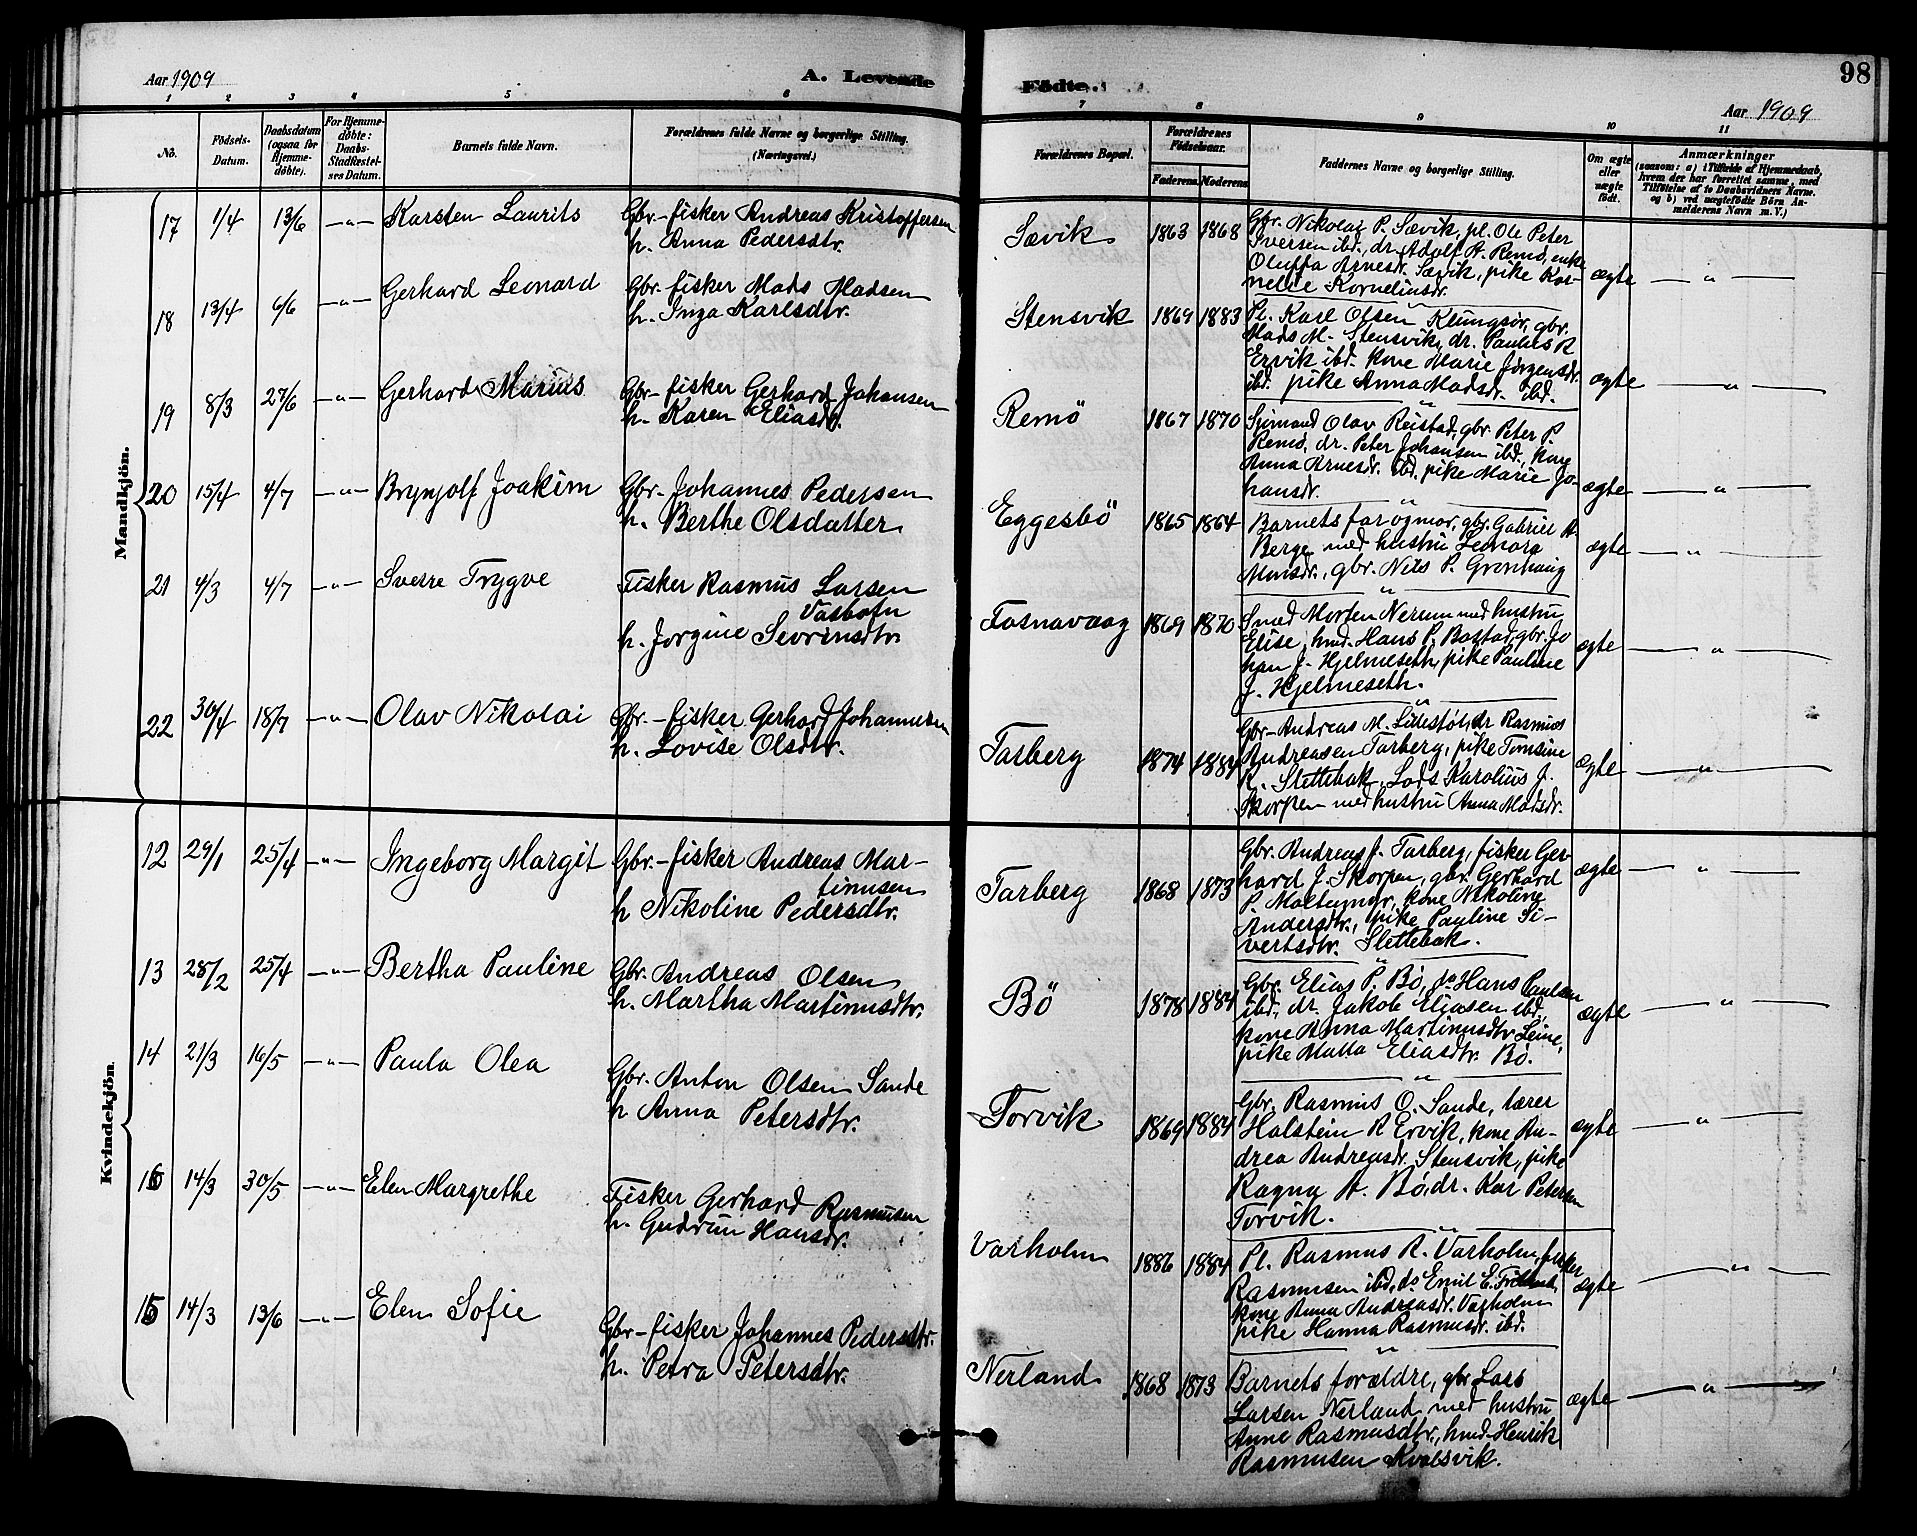 Aar 1909
A. Levende
Födte.
98
Aar 1909
1 2 3 4 5 6 7 8 9 10 11
No.
Födsels-Datum.
Daabsdatum (ogsaa for Hjemme-döbte).
For Hjemme-döbte: Daabs-Stadfæstel-ses Datum.
Barnets fulde Navn.
Forældrenes fulde Navne og borgerlige Stilling. (Næringsvei.)
Forældrenes Bopæl.
Forældrenes Födselsaar.
Faderens. Moderens.
Faddernes Navne og borgerlige Stilling.
Om ægte eller uægte födt.
Anmærkninger
(saasom: a) i Tilfælde af Hjemmedaab, hvem der har forrettet samme, med Tilföielse af to Daabsvidners Navne, og b) ved uægtefödte Börn An-melderens Navn m. V.)
Mandkjön.
17 1/4 13/6 -"- Karsten Laurits
Gbr-fisker Andreas Kristoffersen
h. Anna Pedersdtr.
Sævik 1863 1868
Gbr. Nikolai P. Sævik, pl. Ole Peter
Iversen ibd., dr. Adolf A. Remö, enke
Oluffa Arnesdr. Sævik, pike Kor-
nelie Korneliusdr.
ægte — " —
18 13/4 6/6 -"- Gerhard Leonard
Gbr-fisker Mads Madsen
h. Inga Karlsdtr.
Stensvik 1869 1883
Pl. Karl Olsen Klungsör, gbr.
Mads M. Stensvik, dr. Paulus R
Ervik ibd. kone Marie Jörgensdr.
ibd. pike Anna Madsdr. ibd.
ægte — " —
19 8/3 27/6 -"- Gerhard Marius
Gbr-fisker Gerhard Johansen
h. Karen Eliasdr.
Remö 1867 1870
Sjömand Olav Reistad, gbr. Peter P.
Remö, dr. Peter Johansen ibd., kone
Anna Arnesdr. ibd. pike Marie Jo-
hansdr.
ægte — " —
20 15/4 4/7 -"- Brynjolf Joakim
Gbr-Johannes Pedersen
h. Berthe Olsdatter
Eggesbö 1865 1864
Barnets far og mor, gbr. Gabriel A
Berge med hustru Leonora
Monsdr., gbr. Nils P. Grönhaug
ægte — " —
21 4/3 4/7 -"- Sverre Trygve
Fisker Rasmus Larsen
Vasbotn
h. Jorgine Sevrinsdtr.
Fosnavaag 1869 1870
Smed Morten Nerem med hustru
Elise, hmd. Hans P. Bostad, gbr. Jo
han J. Hjelmeseth, pike Pauline
J. Hjelmeseth.
ægte — " —
22 30/4 18/7 -"- Olav Nikolai
Gbr-fisker Gerhard Johannesen
h. Lovise Olsdtr.
Tarberg 1874 1884
Gbr-Andreas M. dr. Rasmus
Andreasen Tarberg, pike Tomsine
R. Slettebak, Lods Karolius J.
Skorpen med hustru Anna Madsdr.
ægte — " —
Kvindekjön.
12 29/1 25/4 -"- Ingeborg Margit
Gbr-fisker Andreas Mar-
tinusen
h Nikoline Pedersdtr.
Tarberg 1868 1873
Gbr. Andreas J. Tarberg, fisker Ger
hard J. Skorpen, gbr. Gerhard
P. Moltumyr, kone Nikoline
Andersdtr., pike Pauline Si-
vertsdtr. Slettebak.
ægte — " —
13 28/2 25/4 -"- Bertha Pauline
Gbr. Andreas Olsen
h. Martha Martinusdtr.
Bö 1878 1884
Gbr. Elias P. Bö, do Hans Paulsen
ibd., dr. Jakob Eliasen ibd.,
kone Anna Martinusdtr Leine,
pike Matta Eliasdtr. Bö.
ægte — " —
14 21/3 16/5 -"- Paula Olea
Gbr. Anton Olsen Sande
h Anna Petersdtr.
Torvik 1869 1884
Gbr. Rasmus O. Sande, lærer
Halstein R Ervik, kone An-
drea Andreasdr. Stensvik, pike
Ragna A. Bö, dr. Kar Petersen
Torvik.
ægte — " —
16 14/3 30/5 -"- Elen Margrethe
Fisker Gerhard Rasmusen
h. Gudrun Hansdr.
Varholm 1886 1884
Pl. Rasmus R. Varholm, fisker
Rasmusen ibd, do Emil E.
kone Anna Andreasdr. Varholm
pike Hanna Rasmusdr. ibd.
ægte — " —
15 14/3 13/6 -"- Elen Sofie
Gbr-fisker Johannes Pedersdtr.
h. Petra Petersdtr.
Nerland 1868 1873
Barnets forældre, gbr Lars
Larsen Nerland med hustru
Anne Rasmusdtr., hmd-Henrik
Rasmusen Kvalsvik.
ægte — " —